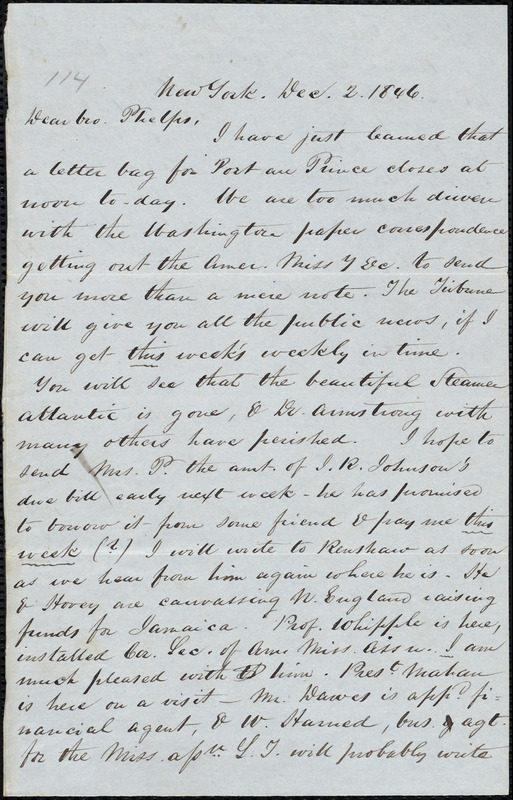 114
New York. Dec. 2. 1846.
Dear bro. Phelps,
I have just learned that
a letter bag for Port au Prince closes at
noon to-day. We are too much driven
with the Washington paper correspondence
getting out the Amer. Missy &c. to send
you more than a mere note. The Tribune
will give you all the public news, if I
can get this week's weekly in time.
You will see that the beautiful Steamer
Atlantic is gone, & Dr. Armstrong with
many others have perished. I hope to
send Mrs. P the amt. of J. R. Johnson's
due bill early next week - he has promised
to borrow it from some friend & pay me this
week (?) I will write to Renshaw as soon
as we hear from him again where he is - He
& Hovey are canvassing N. England raising
funds for Jamaica. Prof. Whipple is here,
installed Cor. Sec. of Am. Miss. Assn. I am
much pleased with him. Prest. Mahan
is here on a visit - Mr. Dawes is appd. fi-
nancial agent, & W. Harned, bus. agt.
for the Miss. assn. L. T. will probably write